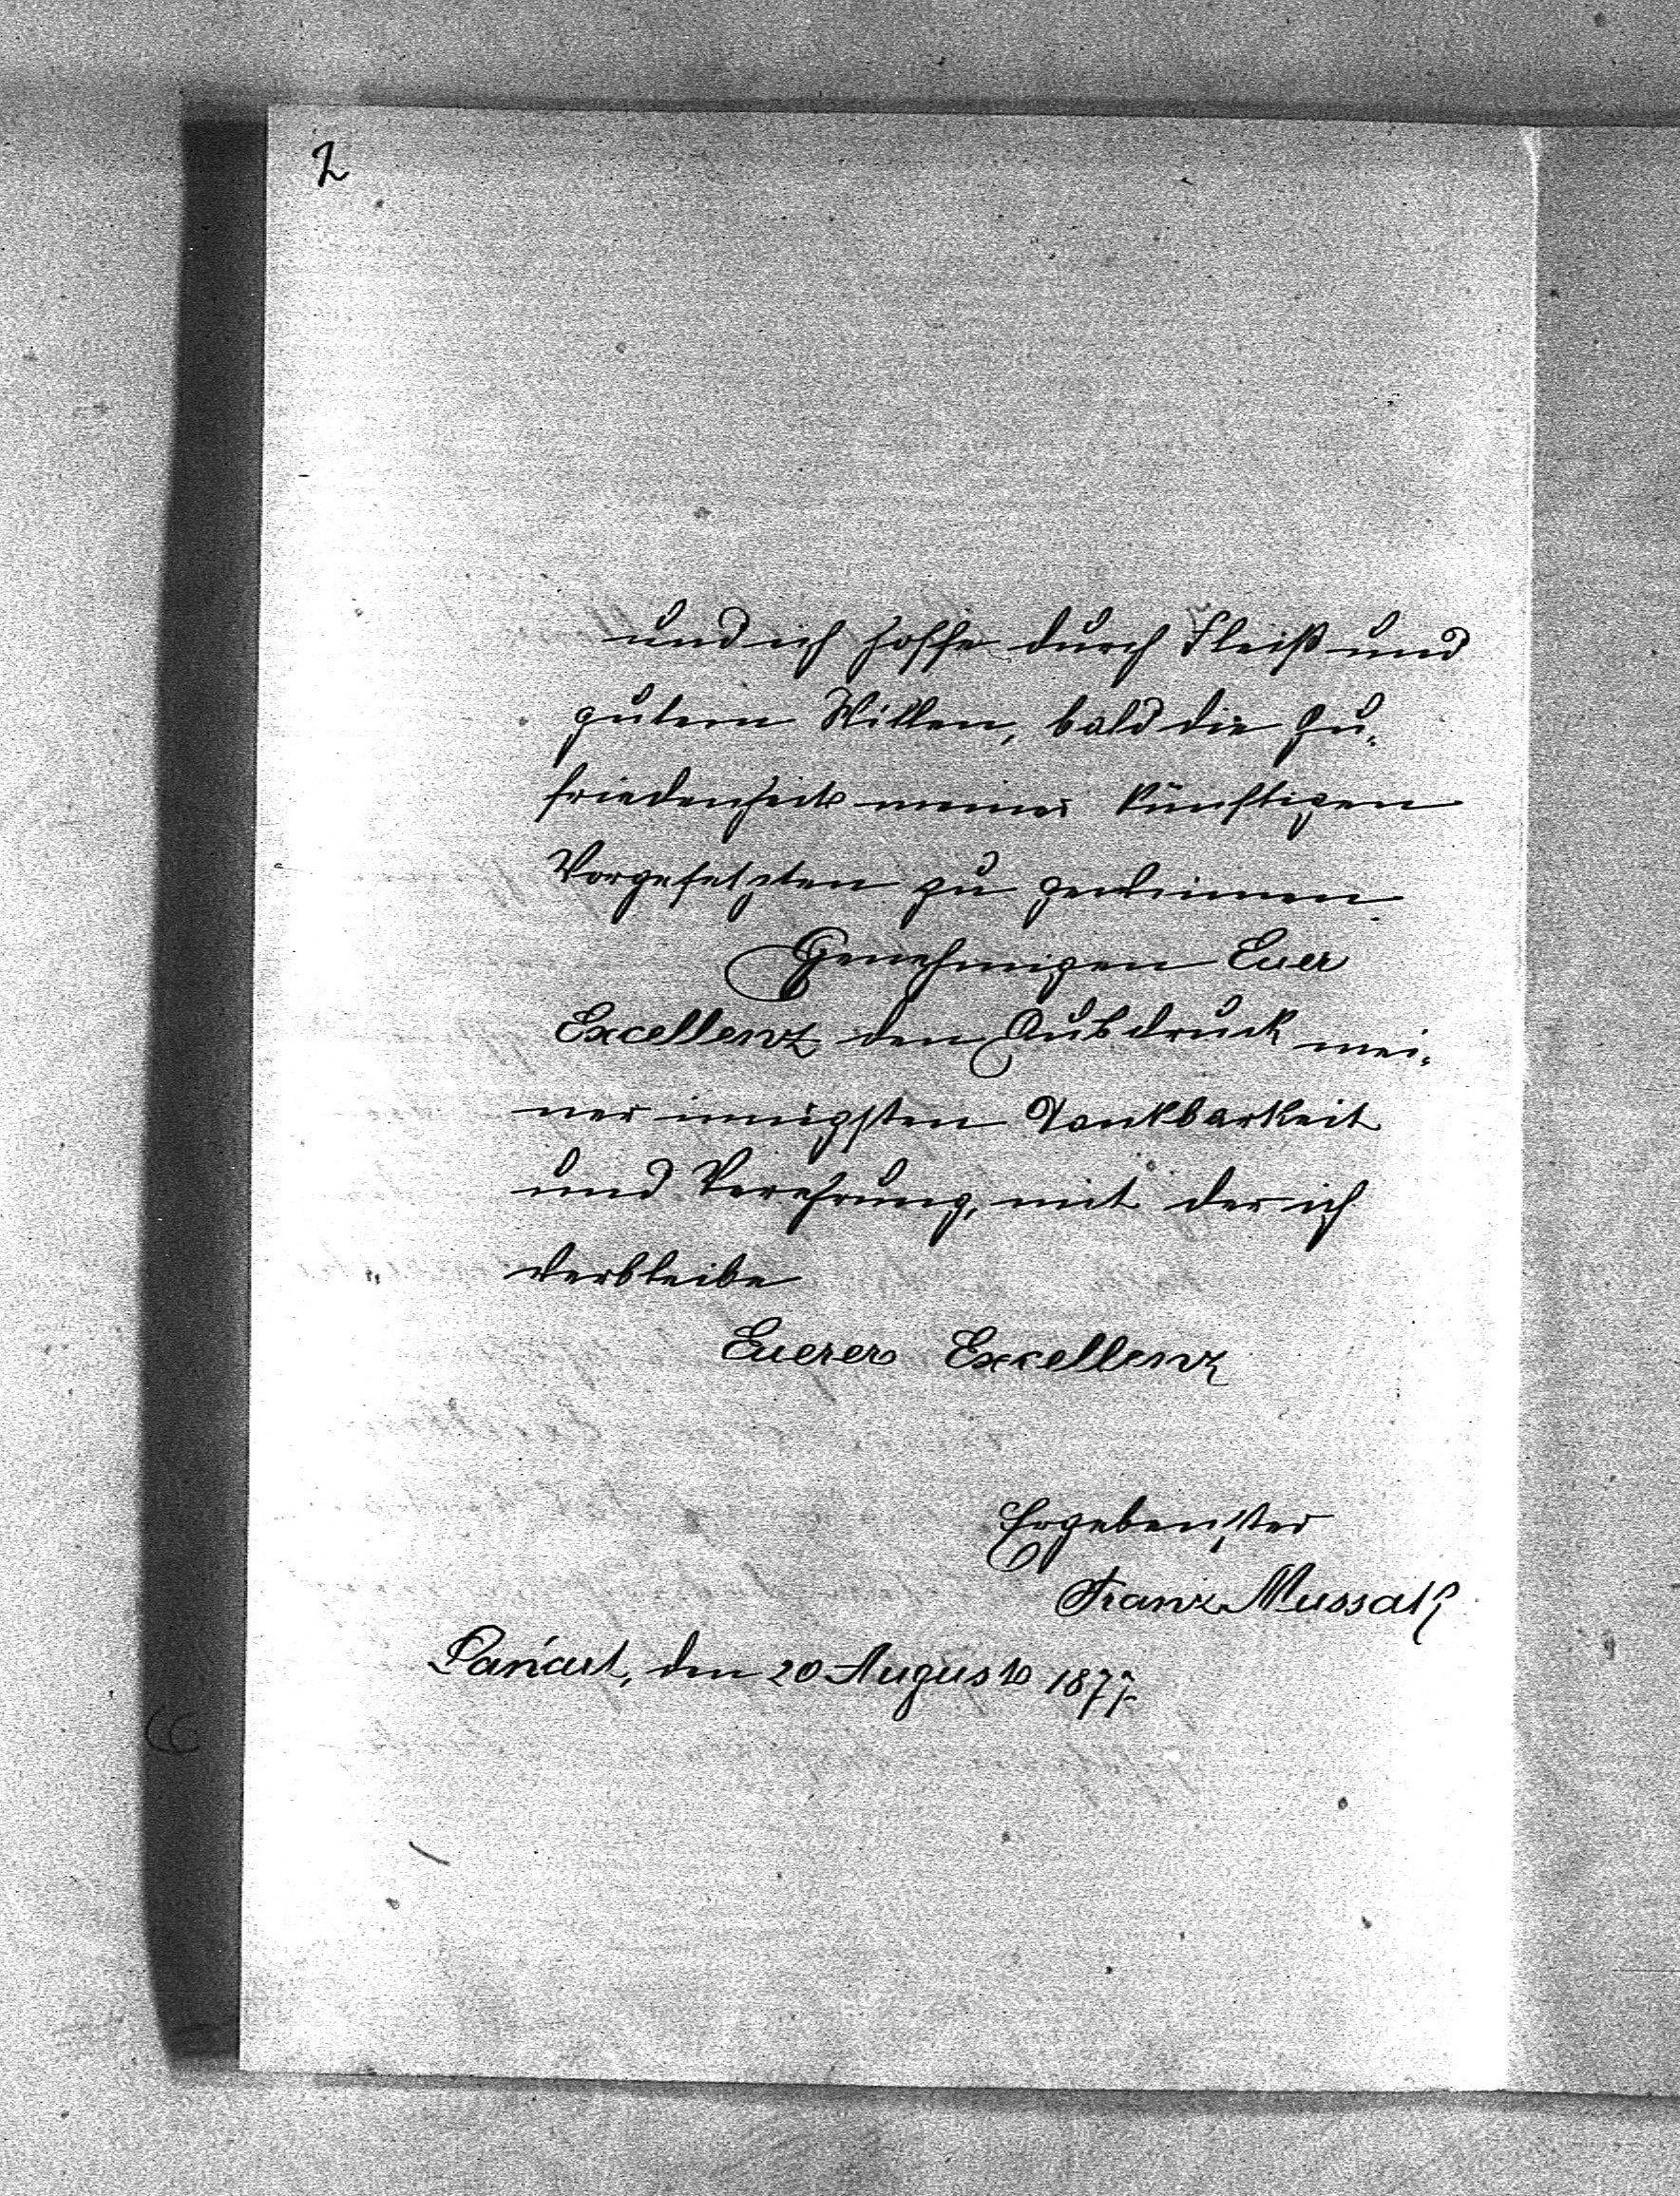 2
und ich hoffe durch Fleiß und
gutem Willen, bald die Zu-
friedenheit meiner künftigen
Vorgesetzten zu gewinnen.
Genehmigen Euer
Excellenz den Ausdruck mei-
ner innigsten Dankbarkeit
und Verehrung, mit der ich
verbleibe
Euerer Excellenz
Ergebenster
Franz Mussak
Łańcut, den 20 August 1877.